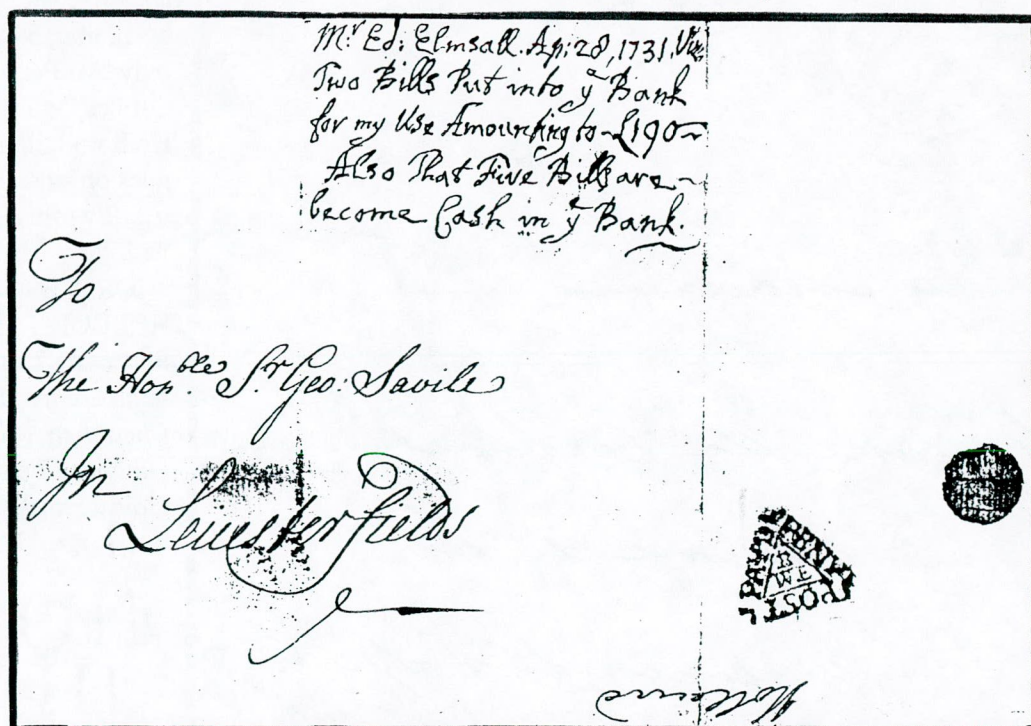 Mʳ Ed: Elmsall. Ap: 28, 1731. Viz
Two Bills Put into yᵉ Bank
for my Use Amounting to ~£190~
Also That Five Bills are ~
become Cash in yᵉ Bank.
To
The Honᵇˡᵉ Sʳ Geo: Savile
In
Leicester fields
PENY
POST
PAYD
WE